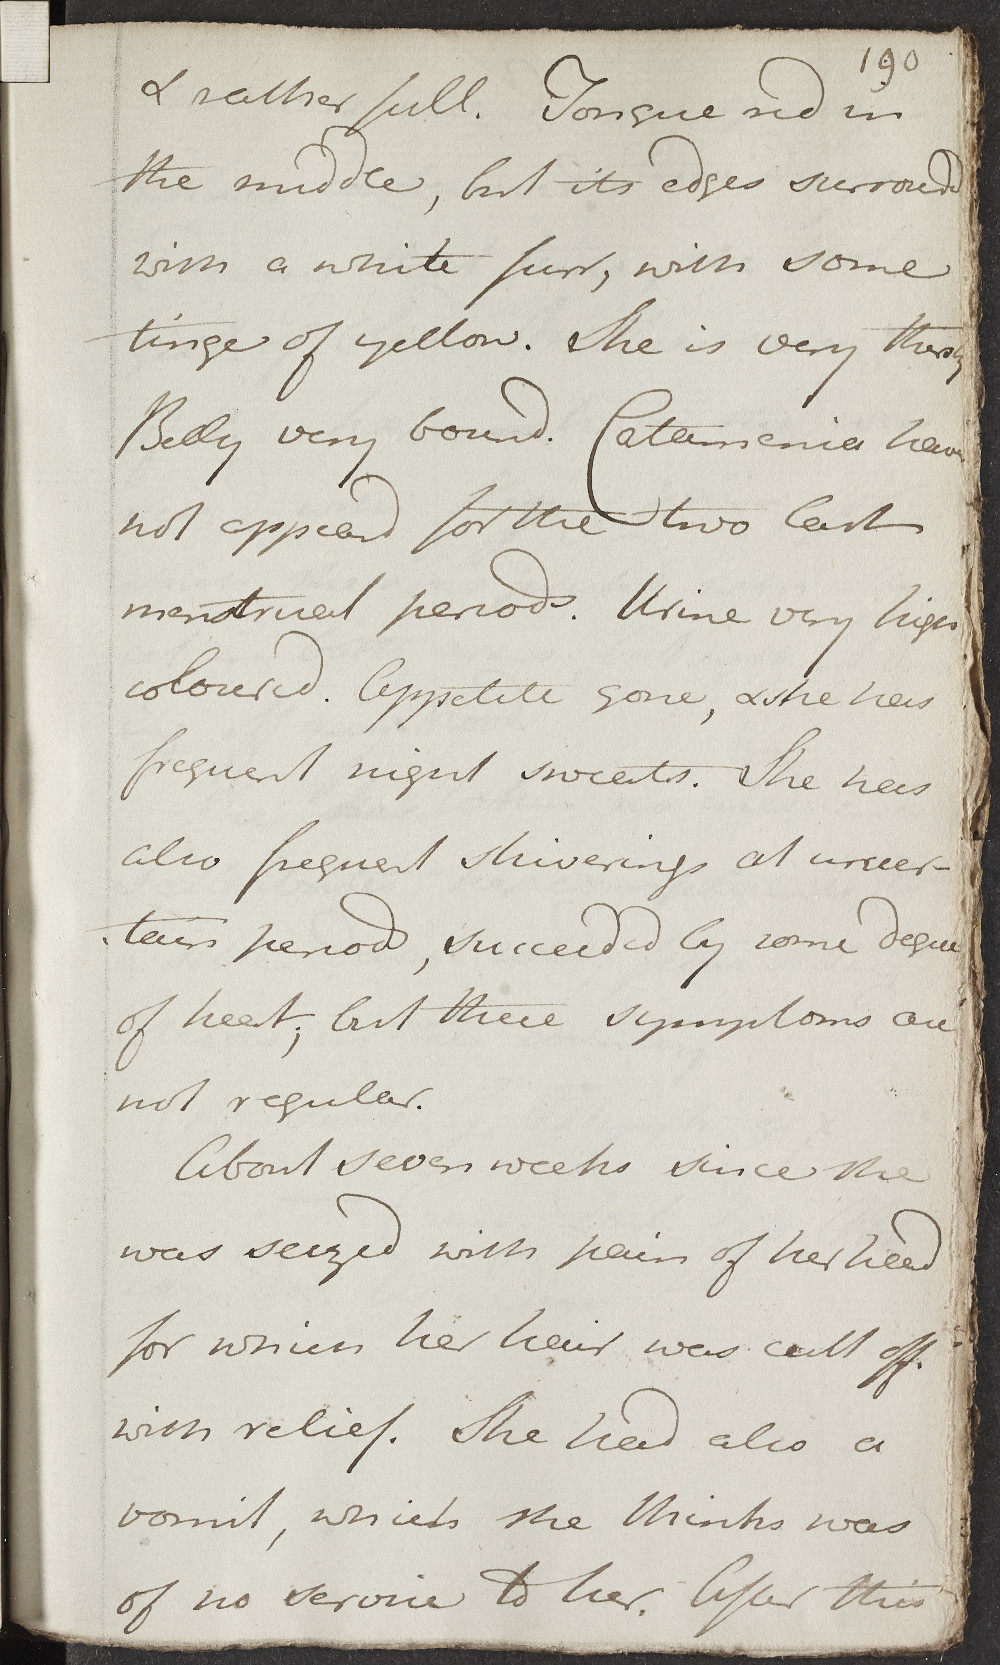 190
& rather full. Tongue red in
the middle, but its edges surround
with a white furr, with some
tinge of yellow. She is very thirsty
Belly very bound. Catamenia have
not appeard for the two last
menstrual periods. Urine very high
coloured. Appetite gone, & she has
frequent night sweats. She has
also frequent shiverings at uncer-
tain periods, succeeded by some degree
of heat; but these symptoms are
not regular.
About seven weeks since she
was seized with pain of her head
for which her hair was cutt off.
with relief. She had also a
vomit, which she thinks was
of no service to her. After this